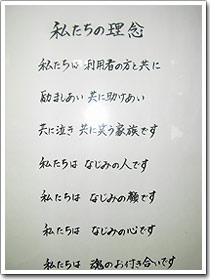 私たちの理念
私たちは 利用者の方と共に
励ましあい 共に助けあい
共に泣き 共に笑う家族です
私たちは なじみの人です
私たちは なじみの顔です
私たちは なじみの心です
私たちは 魂のお付き合いです